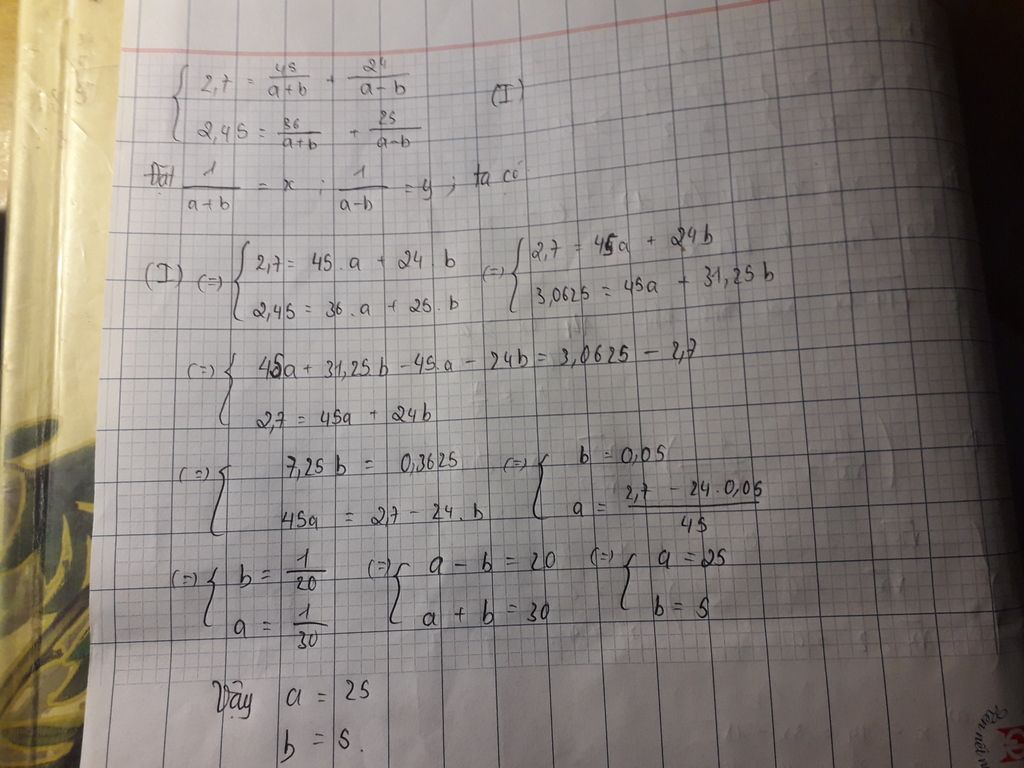 2,7 = 45/(a+b) + 24/(a-b) (I)
2,45 = 36/(a+b) + 25/(a-b)
Đặt 1/(a+b) = x ; 1/(a-b) = y ; ta có
(I) (=) { 2,7 = 45.a + 24.b (=) { 2,7 = 45a + 24b
2,45 = 36.a + 25.b 3,0625 = 45a + 31,25b
(=) { 45a + 31,25b - 45.a - 24b = 3,0625 - 2,7
2,7 = 45a + 24b
(=) { 7,25b = 0,3625 (=) { b = 0,05
45a = 2,7 - 24.b a = (2,7 - 24.0,05)/45
(=) { b = 1/20 (=) { a - b = 20 (=) { a = 25
a = 1/30 a + b = 30 b = 5
Vậy a = 25
b = 5.